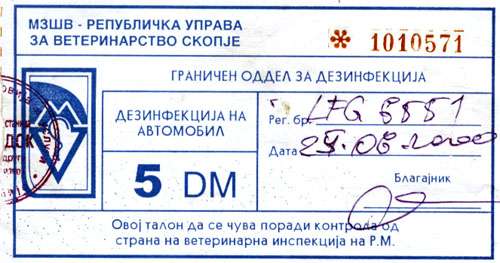 МЗШВ - РЕПУБЛИЧКА УПРАВА
ЗА ВЕТЕРИНАРСТВО СКОПЈЕ
* 1010571
ГРАНИЧЕН ОДДЕЛ ЗА ДЕЗИНФЕКЦИЈА
ДЕЗИНФЕКЦИЈА НА
АВТОМОБИЛ
5 DM
Рег. бр.
Дата
Благајник
Овој талон да се чува поради контрола од
страна на ветеринарна инспекција на Р.М.